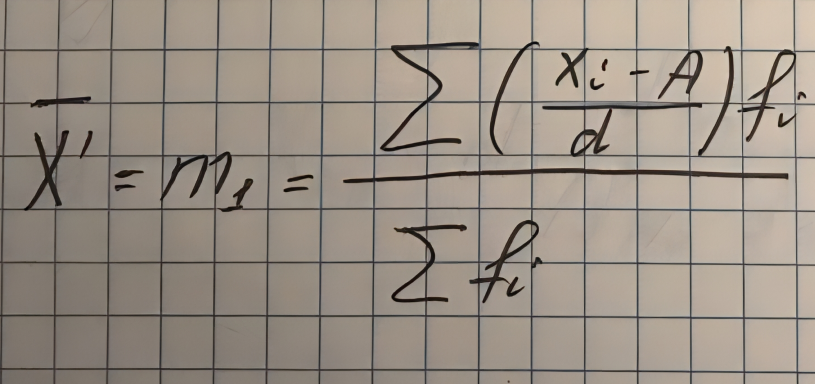 X̅' = m₁ = \frac{\sum \left( \frac{x_i - A}{d} \right) f_i}{\sum f_i}